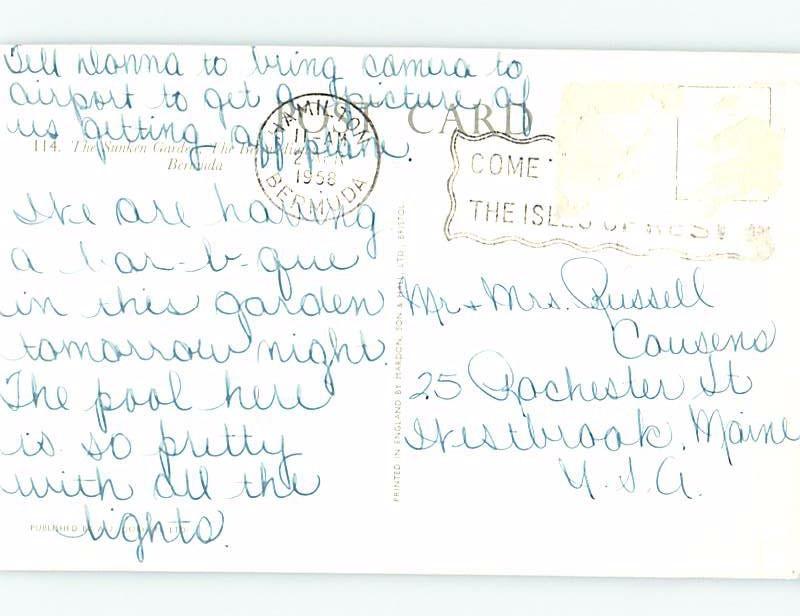 Tell Donna to bring camera to
airport to get a picture of
us getting off plane.
POST CARD
114. The Sunken Garden, The
Bermuda
HAMILTON
11-AM
1958
BERMUDA
COME
THE ISLES OF REST
We are having
a bar-b-que
in this garden
tomorrow night.
The pool here
is so pretty
with all the
lights.
PRINTED IN ENGLAND BY MARDON, SON & HALL, LTD., BRISTOL
Mr + Mrs. Russell
Cousens
25 Rochester St
Westbrook, Maine
U.S.A.
PUBLISHED BY
LTD